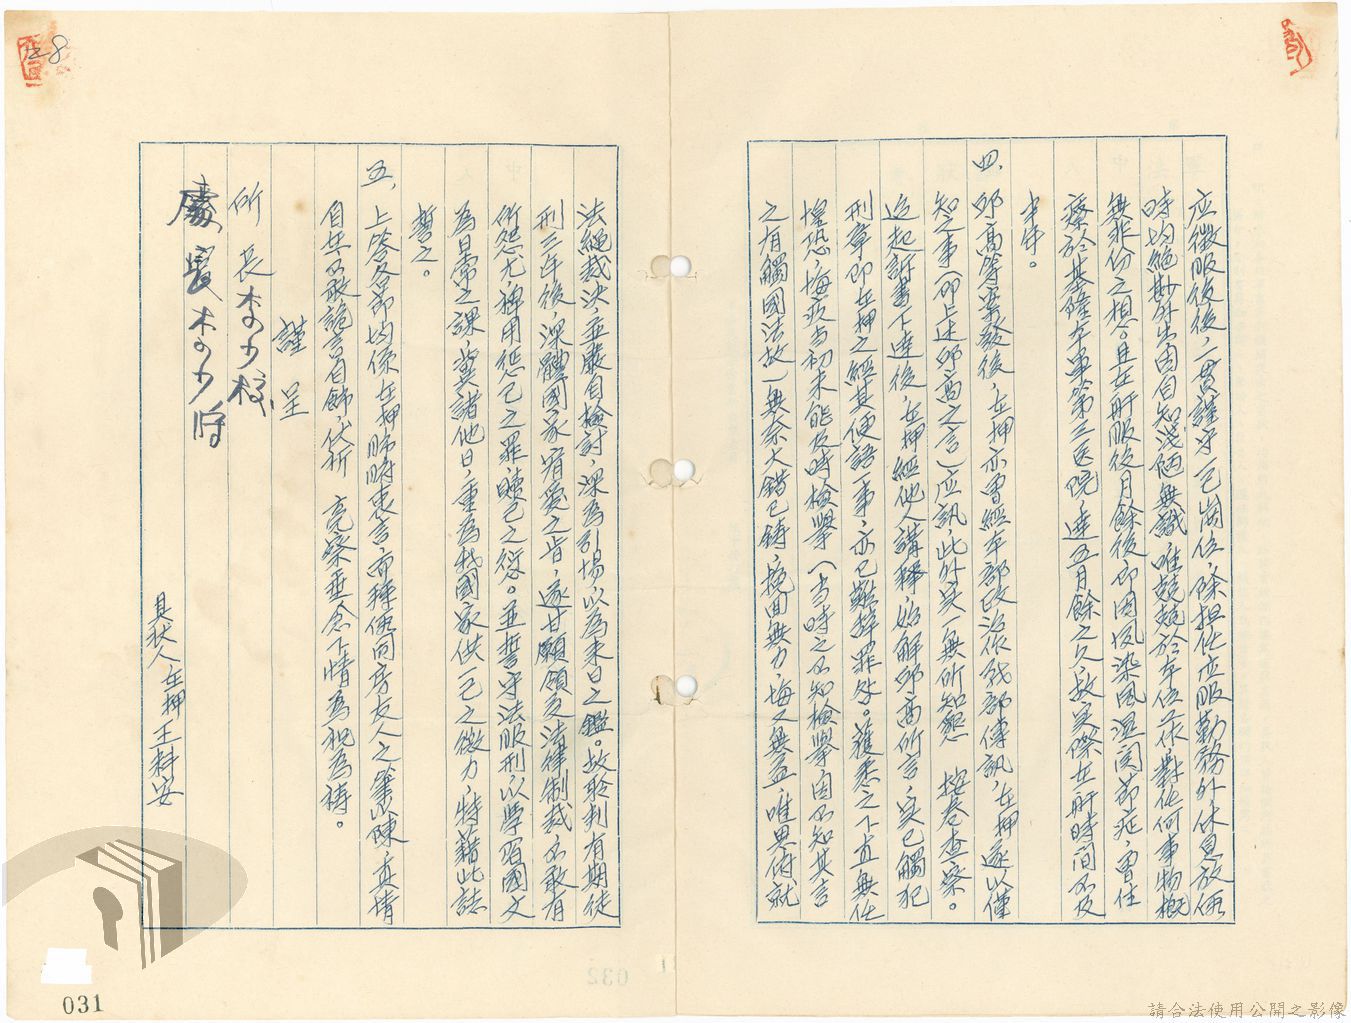 應徵服役後，一貫謹守己崗位，除担任应服勤務外休息放假
時均絕尠外出因自知淺陋無識唯兢兢於本位工作，對任何事物概
無非份之想。且在肝服役月餘後即因傳染風濕關節炎，曾住
療於基隆本軍第三医院，達五月餘之久，故实際在肝時间不及
半年。
四、邱高等案發後，在押亦曾經本部政治作戰部傳訊，在押遂以僅
知之事（即上述邱高之言）应訊，此外实一無所知懇　按卷查察。
迨起訴書下達後，在押經他人講釋，始解邱高所言，实已觸犯
刑章即在押之經其便語一事，亦已難辞罪咎。獲悉之下直無任
惶恐，悔疚当初未能及時檢舉（当時之不知檢舉，因不知其言
之有觸國法故）無奈大錯已鑄，挽回無力，悔又無益，唯思俯就
法繩裁決，並嚴自檢討，深為引惕，以為来日之鑑。故聆判有期徒
刑三年後，深體國家宥愛之旨，遂甘願領受法律制裁不敢有
所怨尤，稗用惩己之罪，贖己之愆。並誓守法服刑以學習國文
為日常之課，冀諸他日，重為我國家供己之微力，特藉此誌
誓之。
五、上答各節均係在押肺腑衷言，而稗使同房友人之筆以陳，真情
自在，不敢詭言自飾，伏祈　亮察垂念下情為祝為禱。
謹呈
所長李少校
處長李少將
具狀人在押王科安
128
031
請合法使用公開之影像